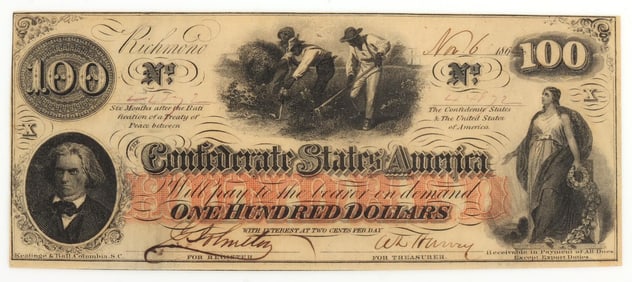 Richmond Nov 6 186
100 100
No. No.
Six Months after the Rati
fication of a Treaty of
Peace between
The Confederate States
& The United States
of America.
Confederate States America
Will pay to the bearer on demand
ONE HUNDRED DOLLARS
WITH INTEREST AT TWO CENTS PER DAY
FOR REGISTER
FOR TREASURER.
Keatinge & Ball, Columbia, S.C.
Receivable in Payment of All Dues
Except Export Duties